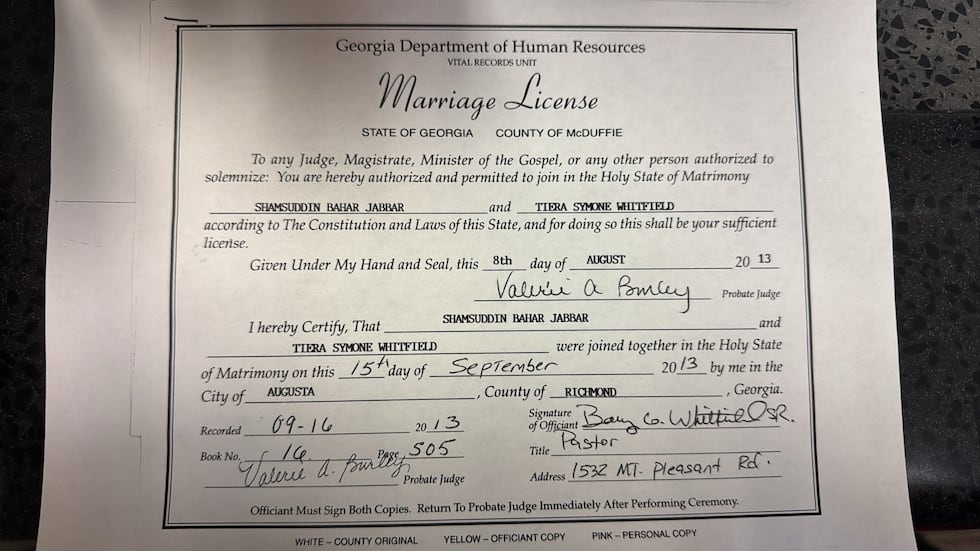 Georgia Department of Human Resources
VITAL RECORDS UNIT
Marriage License
STATE OF GEORGIA COUNTY OF McDUFFIE
To any Judge, Magistrate, Minister of the Gospel, or any other person authorized to
solemnize: You are hereby authorized and permitted to join in the Holy State of Matrimony
SHAMSUDDIN BAHAR JABBAR and TIERA SYMONE WHITFIELD
according to The Constitution and Laws of this State, and for doing so this shall be your sufficient
license.
Given Under My Hand and Seal, this 8th day of AUGUST 20 13
Valerie A Burley Probate Judge
I hereby Certify, That SHAMSUDDIN BAHAR JABBAR and
TIERA SYMONE WHITFIELD were joined together in the Holy State
of Matrimony on this 15th day of September 20 13 by me in the
City of AUGUSTA, County of RICHMOND, Georgia.
Recorded 09-16 20 13
Book No. 16 Page 505
Valerie A. Burley Probate Judge
Signature
of Officiant G. Whitfield SR.
Title Pastor
Address 1532 MT. Pleasant Rd.
Officiant Must Sign Both Copies. Return To Probate Judge Immediately After Performing Ceremony.
WHITE – COUNTY ORIGINAL YELLOW – OFFICIANT COPY PINK – PERSONAL COPY